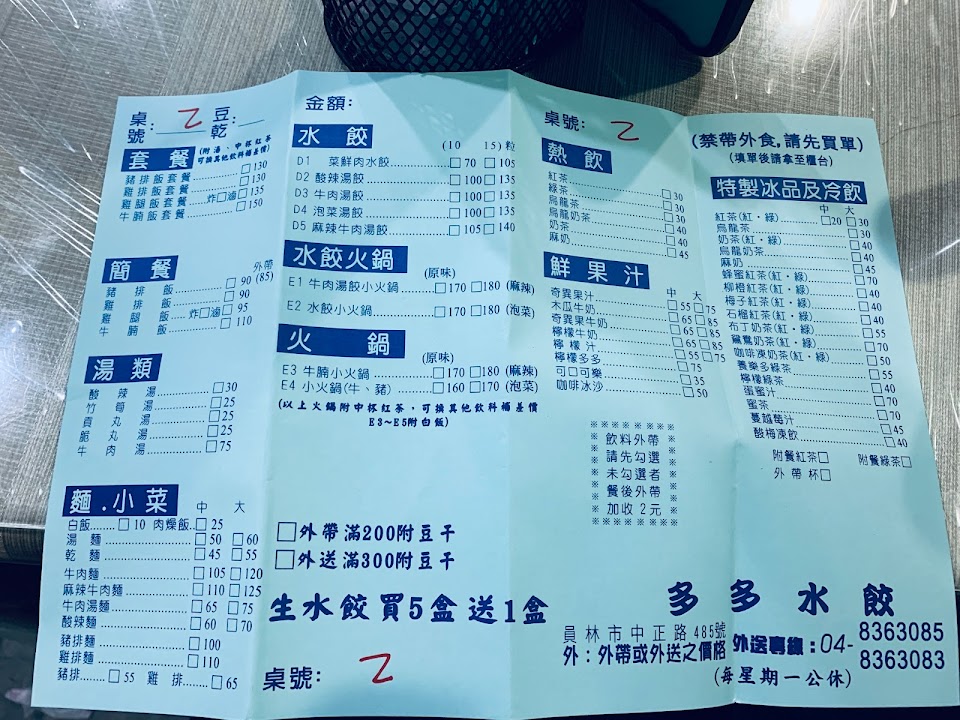 桌號: 乙 豆乾:
套餐 (附湯、中杯紅茶 可換其他飲料補差價)
豬排飯套餐 □130
雞排飯套餐 □130
雞腿飯套餐 炸□滷□135
牛腩飯套餐 □150
簡餐 外帶 (85)
豬排飯 □90
雞排飯 □90
雞腿飯 炸□滷□95
牛腩飯 □110
湯類
酸辣湯 □30
竹筍湯 □25
貢丸湯 □25
脆丸湯 □25
牛肉湯 □75
麵.小菜 中 大
白飯........□10 肉燥飯..□25
湯麵 □50 □60
乾麵 □45 □55
牛肉麵 □105 □120
麻辣牛肉麵 □110 □125
牛肉湯麵 □65 □75
酸辣麵 □60 □70
豬排麵 □100
雞排麵 □110
豬排........□55 雞排........□65
金額:
水餃 (10 15)粒
D1 菜鮮肉水餃 □70 □105
D2 酸辣湯餃 □100 □135
D3 牛肉湯餃 □100 □135
D4 泡菜湯餃 □100 □135
D5 麻辣牛肉湯餃 □105 □140
水餃火鍋 (原味)
E1 牛肉湯餃小火鍋 □170 □180 (麻辣)
E2 水餃小火鍋 □170 □180 (泡菜)
火鍋 (原味)
E3 牛腩小火鍋 □170 □180 (麻辣)
E4 小火鍋(牛、豬) □160 □170 (泡菜)
(以上火鍋附中杯紅茶,可換其他飲料補差價
E3~E5附白飯)
□外帶滿200附豆干
□外送滿300附豆干
生水餃買5盒送1盒
桌號: 乙
桌號: 乙
熱飲
紅茶 □30
綠茶 □30
烏龍茶 □30
烏龍奶茶 □40
奶茶 □40
麻奶 □45
鮮果汁 中 大
奇異果汁 □55 □75
木瓜牛奶 □65 □85
奇異果牛奶 □65 □85
檸檬牛奶 □65 □85
檸檬汁 □55 □75
檸檬多多
可口可樂 □35
咖啡冰沙 □50
※※※※※※※※
※ 飲料外帶 ※
※ 請先勾選 ※
※ 未勾選者 ※
※ 餐後外帶 ※
※ 加收2元 ※
※※※※※※※※
(禁帶外食,請先買單)
(填單後請拿至櫃台)
特製冰品及冷飲
中 大
紅茶(紅·綠) □20 □30
烏龍茶 □30
奶茶(紅·綠) □40
烏龍奶茶 □40
麻奶 □45
蜂蜜紅茶(紅·綠) □70
柳橙紅茶(紅·綠) □40
梅子紅茶(紅·綠) □40
石榴紅茶(紅·綠) □40
布丁奶茶(紅·綠) □55
鴛鴦奶茶(紅·綠) □70
咖啡凍奶茶(紅·綠) □50
養樂多綠茶 □55
檸檬綠茶 □40
蜂蜜汁 □70
蜜茶 □70
蔓越莓汁 □45
酸梅凍飲 □40
附餐紅茶□ 附餐綠茶□
外帶杯□
多多水餃
員林市中正路485號
外:外帶或外送之價格
外送專線:04-8363085
8363083
(每星期一公休)